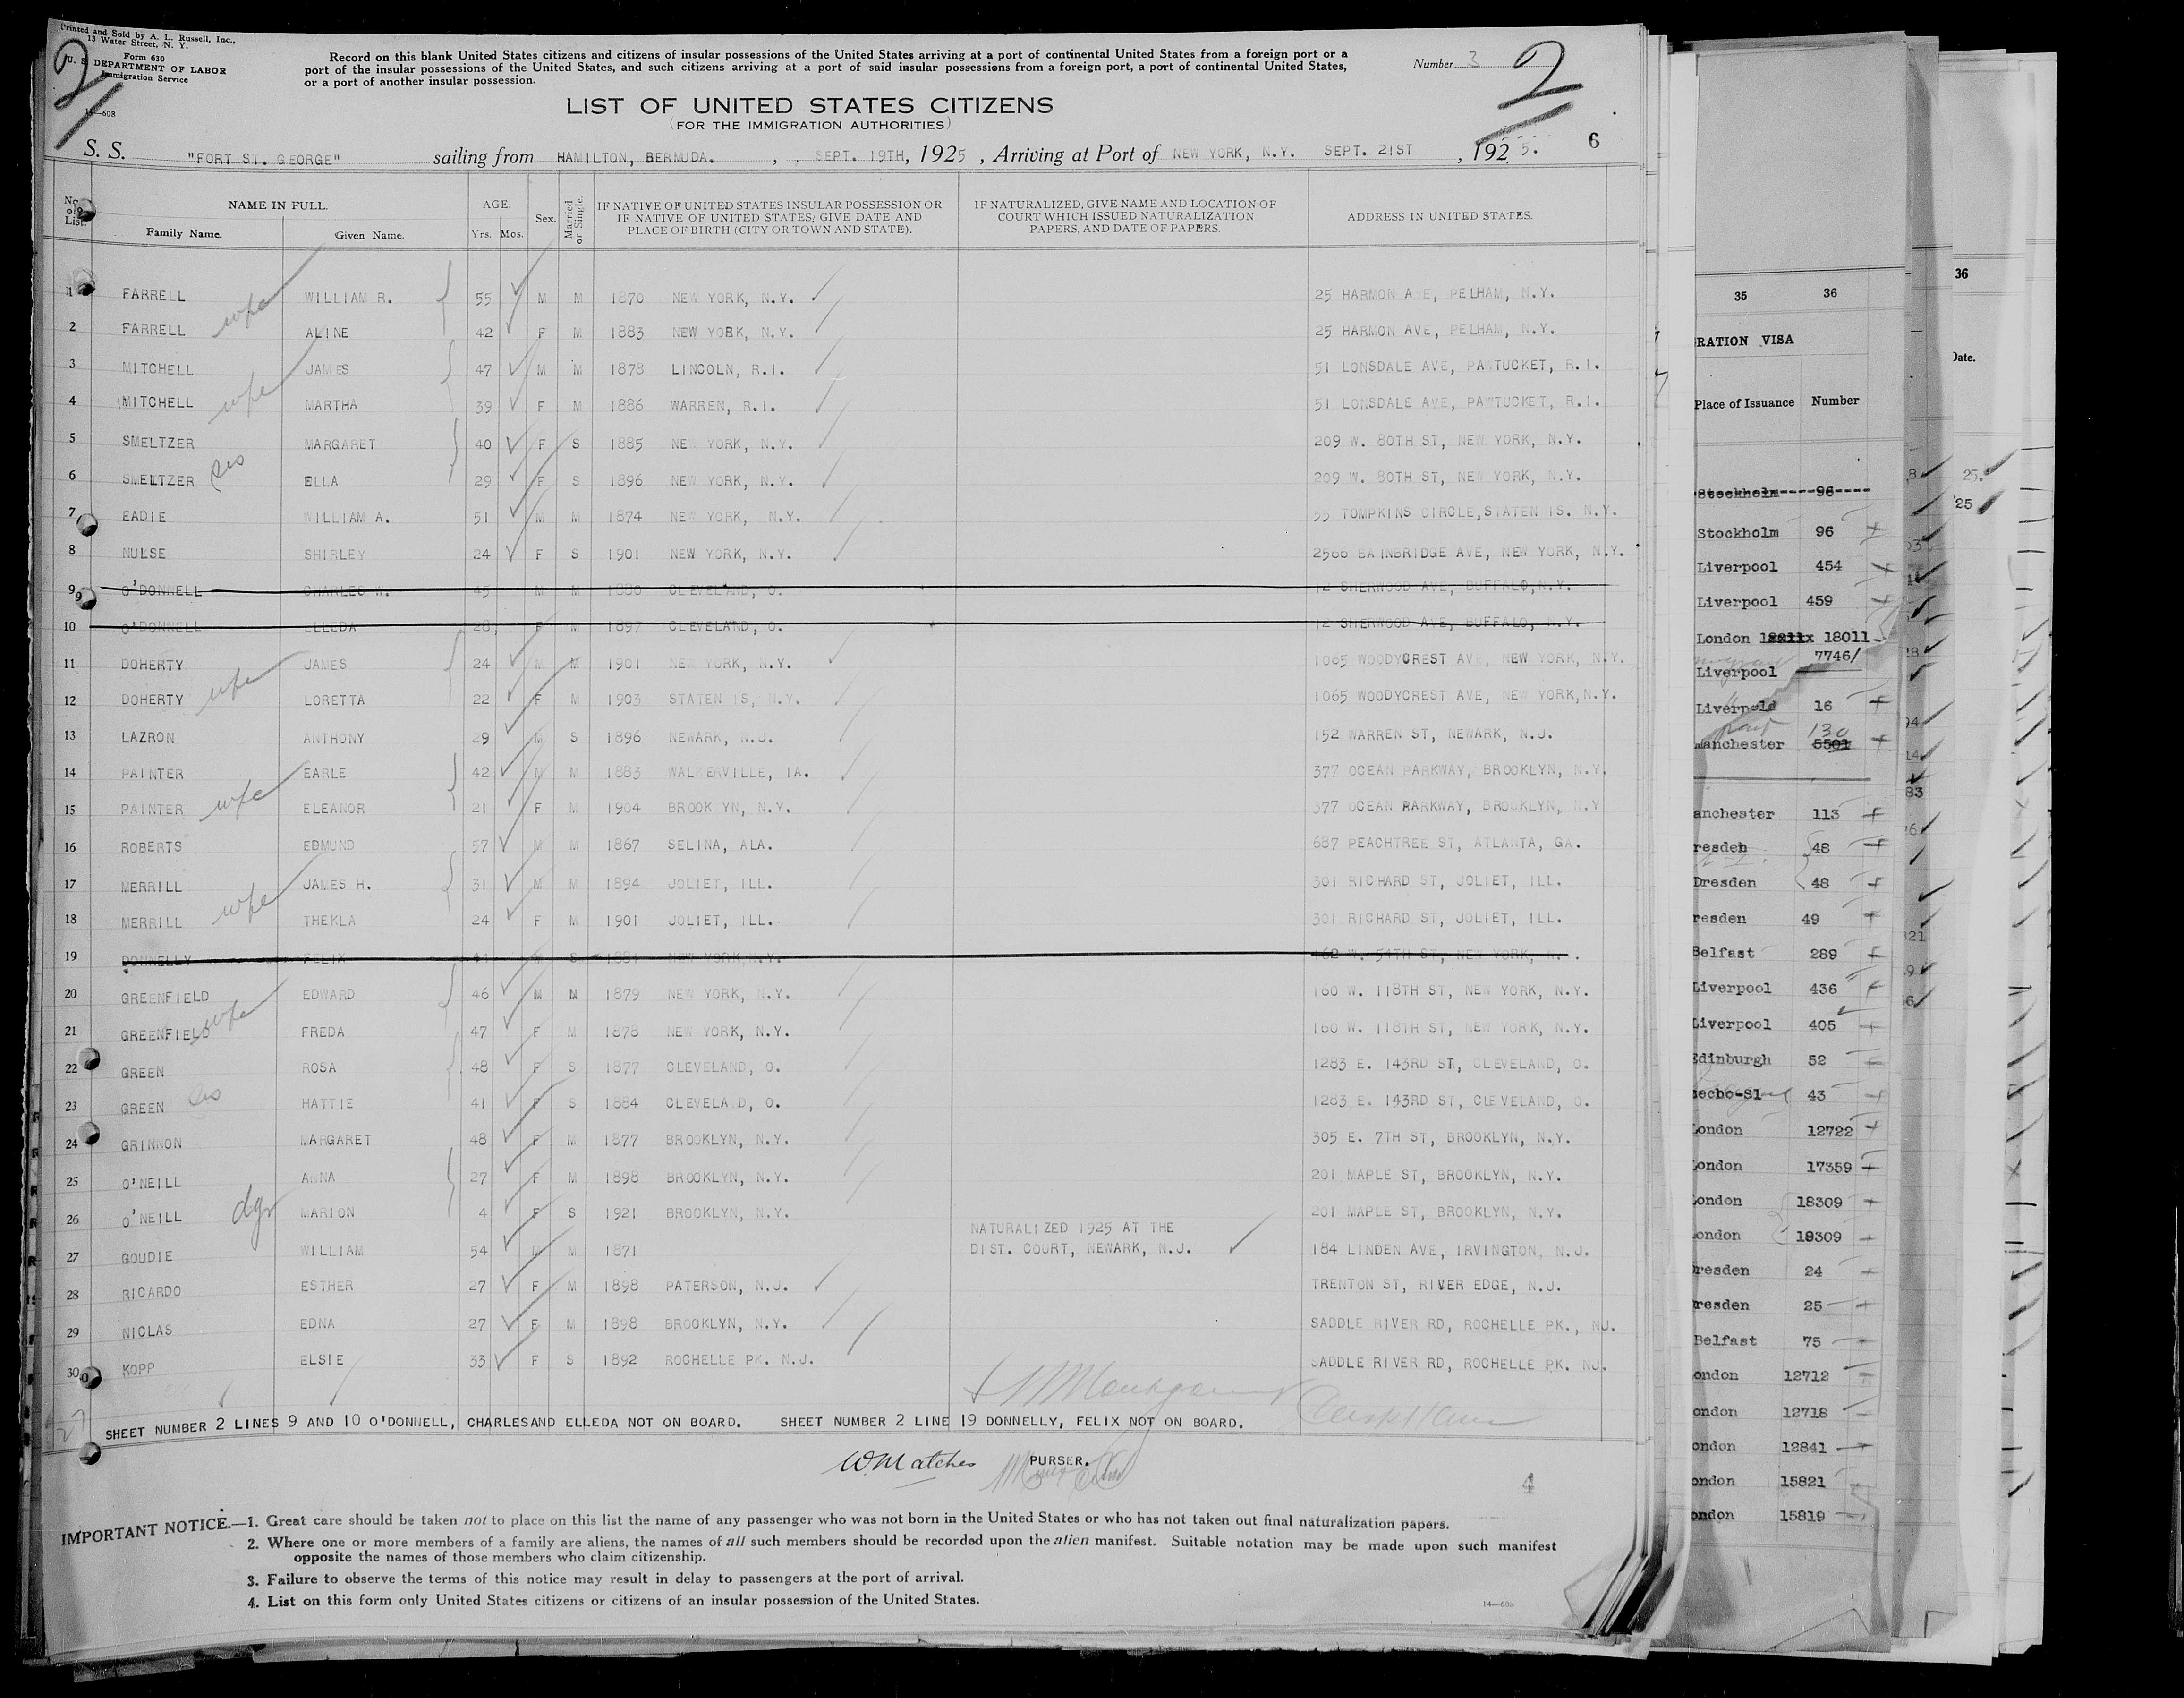 Printed and Sold by A. L. Russell, Inc.,
13 Water Street, N. Y.
Form 630
U. S. DEPARTMENT OF LABOR
Immigration Service
14—608
Record on this blank United States citizens and citizens of insular possessions of the United States arriving at a port of continental United States from a foreign port or a
port of the insular possessions of the United States, and such citizens arriving at a port of said insular possessions from a foreign port, a port of continental United States,
or a port of another insular possession.
Number 3
2
2
LIST OF UNITED STATES CITIZENS
(FOR THE IMMIGRATION AUTHORITIES)
6
S. S. "FORT ST. GEORGE" sailing from HAMILTON, BERMUDA. , SEPT. 19TH, 1925 , Arriving at Port of NEW YORK, N.Y. SEPT. 21ST , 1925.
No. of List. NAME IN FULL. Family Name. Given Name. AGE. Yrs. Mos. Sex. Married or Single. IF NATIVE OF UNITED STATES INSULAR POSSESSION OR IF NATIVE OF UNITED STATES, GIVE DATE AND PLACE OF BIRTH (CITY OR TOWN AND STATE). IF NATURALIZED, GIVE NAME AND LOCATION OF COURT WHICH ISSUED NATURALIZATION PAPERS, AND DATE OF PAPERS. ADDRESS IN UNITED STATES.
1 FARRELL WILLIAM R. 55 M M 1870 NEW YORK, N.Y. 25 HARMON AVE, PELHAM, N.Y.
2 FARRELL wife ALINE 42 F M 1883 NEW YORK, N.Y. 25 HARMON AVE, PELHAM, N.Y.
3 MITCHELL JAMES 47 M M 1878 LINCOLN, R.I. 51 LONSDALE AVE, PAWTUCKET, R.I.
4 MITCHELL wife MARTHA 39 F M 1886 WARREN, R.I. 51 LONSDALE AVE, PAWTUCKET, R.I.
5 SMELTZER MARGARET 40 F S 1885 NEW YORK, N.Y. 209 W. 80TH ST, NEW YORK, N.Y.
6 SMELTZER sis ELLA 29 F S 1896 NEW YORK, N.Y. 209 W. 80TH ST, NEW YORK, N.Y.
7 EADIE WILLIAM A. 51 M M 1874 NEW YORK, N.Y. 55 TOMPKINS CIRCLE, STATEN IS. N.Y.
8 NULSE SHIRLEY 24 F S 1901 NEW YORK, N.Y. 2566 BAINBRIDGE AVE, NEW YORK, N.Y.
9 O'DONNELL CHARLES W. 45 M M 1880 CLEVELAND, O. 12 SHERWOOD AVE, BUFFALO, N.Y.
10 O'DONNELL ELLEDA 28 F M 1897 CLEVELAND, O. 12 SHERWOOD AVE, BUFFALO, N.Y.
11 DOHERTY JAMES 24 M M 1901 NEW YORK, N.Y. 1065 WOODYCREST AVE, NEW YORK, N.Y.
12 DOHERTY wife LORETTA 22 F M 1903 STATEN IS, N.Y. 1065 WOODYCREST AVE, NEW YORK, N.Y.
13 LAZRON ANTHONY 29 M S 1896 NEWARK, N.J. 152 WARREN ST, NEWARK, N.J.
14 PAINTER EARLE 42 M M 1883 WALKERVILLE, IA. 377 OCEAN PARKWAY, BROOKLYN, N.Y.
15 PAINTER wife ELEANOR 21 F M 1904 BROOKLYN, N.Y. 377 OCEAN PARKWAY, BROOKLYN, N.Y
16 ROBERTS EDMUND 57 M M 1867 SELINA, ALA. 687 PEACHTREE ST, ATLANTA, GA.
17 MERRILL JAMES H. 31 M M 1894 JOLIET, ILL. 301 RICHARD ST, JOLIET, ILL.
18 MERRILL wife THEKLA 24 F M 1901 JOLIET, ILL. 301 RICHARD ST, JOLIET, ILL.
19 DONNELLY FELIX S NEW YORK, N.Y. 462 W. 54TH ST, NEW YORK, N. .
20 GREENFIELD EDWARD 46 M M 1879 NEW YORK, N.Y. 160 W. 118TH ST, NEW YORK, N.Y.
21 GREENFIELD wife FREDA 47 F M 1878 NEW YORK, N.Y. 160 W. 118TH ST, NEW YORK, N.Y.
22 GREEN ROSA 48 F S 1877 CLEVELAND, O. 1283 E. 143RD ST, CLEVELAND, O.
23 GREEN sis HATTIE 41 F S 1884 CLEVELAND, O. 1283 E. 143RD ST, CLEVELAND, O.
24 GRINNON MARGARET 48 F M 1877 BROOKLYN, N.Y. 305 E. 7TH ST, BROOKLYN, N.Y.
25 O'NEILL ANNA 27 F M 1898 BROOKLYN, N.Y. 201 MAPLE ST, BROOKLYN, N.Y.
26 O'NEILL dgr MARION 4 F S 1921 BROOKLYN, N.Y. 201 MAPLE ST, BROOKLYN, N.Y.
27 GOUDIE WILLIAM 54 M M 1871 NATURALIZED 1925 AT THE DIST. COURT, NEWARK, N.J. 184 LINDEN AVE, IRVINGTON, N.J.
28 RICARDO ESTHER 27 F M 1898 PATERSON, N.J. TRENTON ST, RIVER EDGE, N.J.
29 NICLAS EDNA 27 F M 1898 BROOKLYN, N.Y. SADDLE RIVER RD, ROCHELLE PK., NJ.
30 KOPP ELSIE 33 F S 1892 ROCHELLE PK. N.J. SADDLE RIVER RD, ROCHELLE PK. NJ.
27
SHEET NUMBER 2 LINES 9 AND 10 O'DONNELL, CHARLESAND ELLEDA NOT ON BOARD. SHEET NUMBER 2 LINE 19 DONNELLY, FELIX NOT ON BOARD.
W Matches PURSER.
4
IMPORTANT NOTICE.—1. Great care should be taken not to place on this list the name of any passenger who was not born in the United States or who has not taken out final naturalization papers.
2. Where one or more members of a family are aliens, the names of all such members should be recorded upon the alien manifest. Suitable notation may be made upon such manifest
opposite the names of those members who claim citizenship.
3. Failure to observe the terms of this notice may result in delay to passengers at the port of arrival.
4. List on this form only United States citizens or citizens of an insular possession of the United States.
14—608
35 36
RATION VISA
Place of Issuance Number
Stockholm----96----
Stockholm 96
Liverpool 454
Liverpool 459
London 18011
7746/
Liverpool
Liverpold 16
130
Manchester 5501
anchester 113
resden 48
Dresden 48
resden 49
Belfast 289
Liverpool 436
Liverpool 405
Edinburgh 52
echo-Sl 43
London 12722
London 17359
London 18309
ondon 18309
Dresden 24
Dresden 25
Belfast 75
ondon 12712
ondon 12718
ondon 12841
ondon 15821
ondon 15819
36
Date.
25.
'25